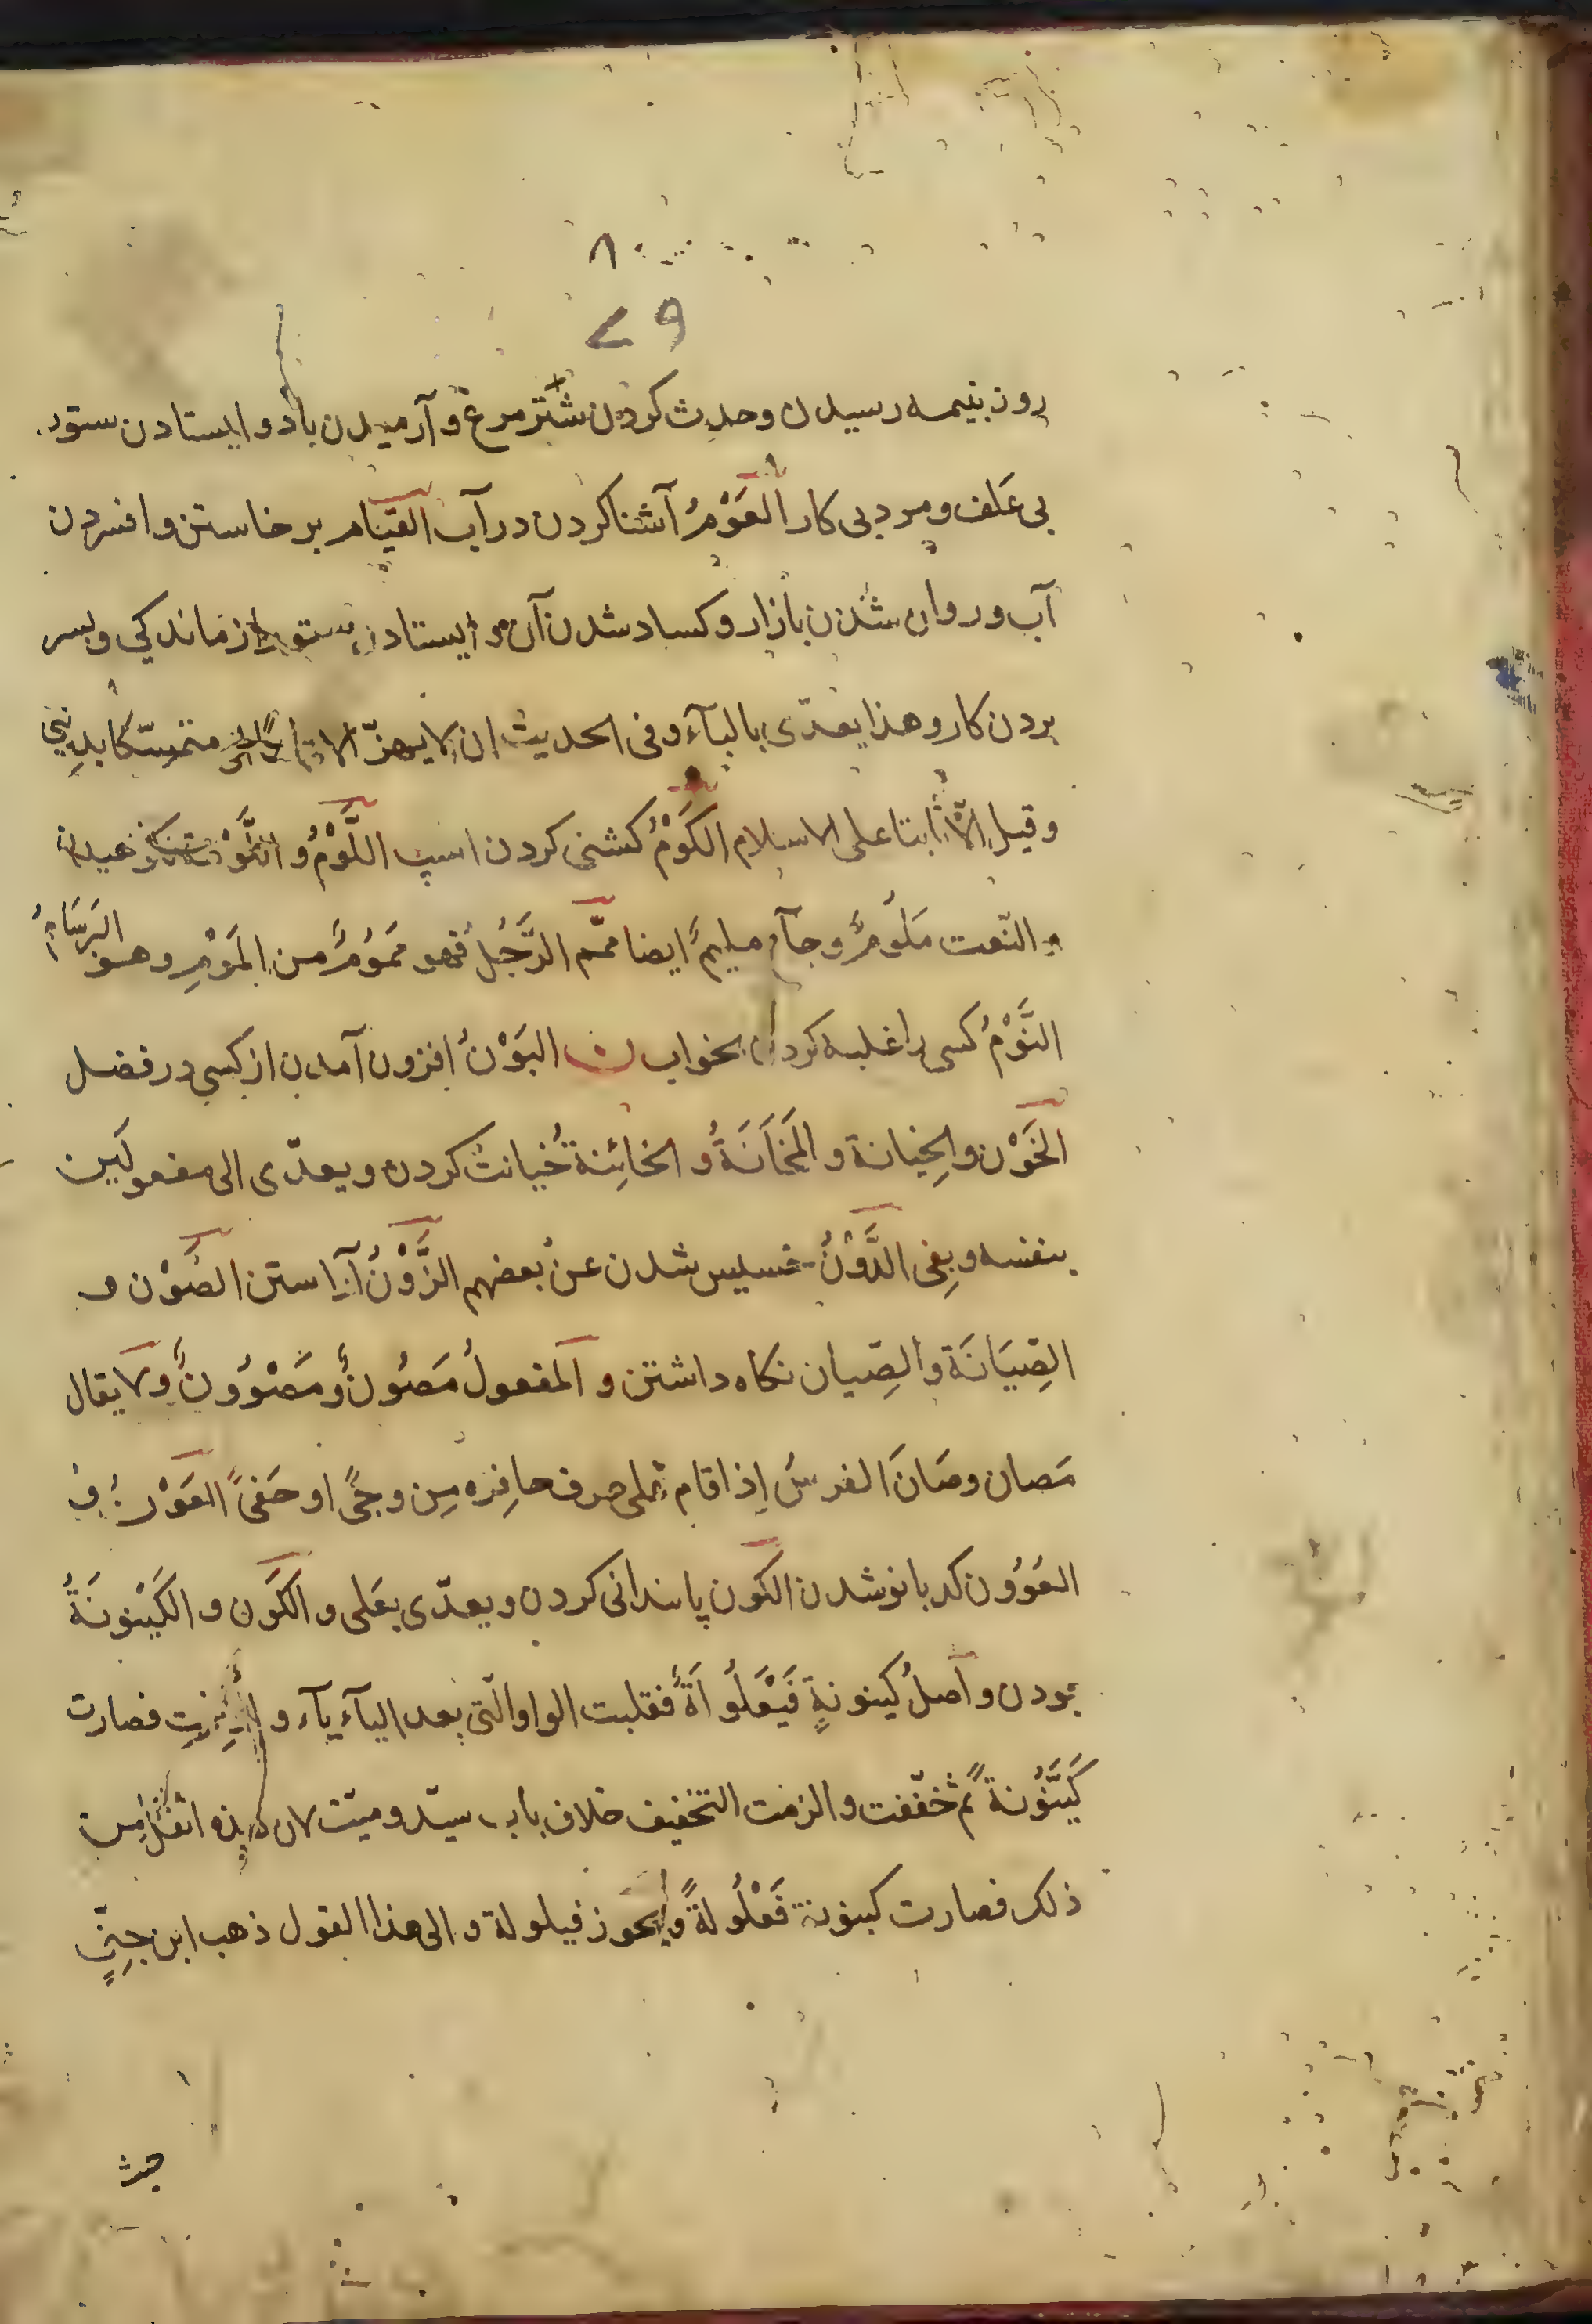 ٧٩
روز بنیمه رسیدن و حدث کردن شُتُرمرغ و آرمیدن باد و ایستادن ستور
بی عَلف و مرد بی کار العَوْمُ آشنا کردن در آب القِیَام بر خاستن و افسردن
آب و روان شدن بازار و کساد شدن آن و ایستادن ستور از ماندکی و بسر
بردن کار و هذا یعدّی بالبآء و فی الحدیث ان لا یخرّ الا قائماً متمسّکا بدِینی
و قیل الّا ثابتا علی الاسلام الکَوْمُ کشنی کردن اسپ اللَّوْمُ و
و النّعت مَلُومٌ و جآء ملیمٌ ایضا مُمّ الرَّجُلُ فهو مَمُومٌ من المَوْمِ و هو البَرسَامُ
النَّوْمُ کسی را غلبه کردن بخواب ن البَوْنُ افزون آمدن از کسی در فضل
الخَوْن و الخِیانة و المَخَانَةُ و الخائِنةُ خیانت کردن و یعدّی الی مفعولَین
بنفسه و بِفی الدَّوْنُ خسیس شدن عن بعضهم الزَّوْنُ آراستن الصَّوْن و
الصِّیَانَة و الصِّیان نکاه داشتن و المفعولُ مَصُونٌ و مَصْوُونٌ و لا یقال
مَصان و صَانَ الفرسُ اِذا قام علی حرف حافِره مِن وجیً او حَفیً العَوْنُ و
العُوُون کدبانو شدن الکَون پاینداني کردن و یعدّی بعَلی و الکَون و الکَیْنونَةُ
بودن و اصلُ کینونةٍ فَیْعَلُولَةٌ فقلبت الواو الّتی بعد الیآء یآء و فصارت
کَیَّنُونةً ثم خُفّفت و الزمت التخفیف خلاف باب سیّد و میّت لان هذه اثقلُ من
ذلک فصارت کینونة فَعْلُولةً و یجوز فیلولة و الی هذا القول ذهب ابن جِنّیٍ